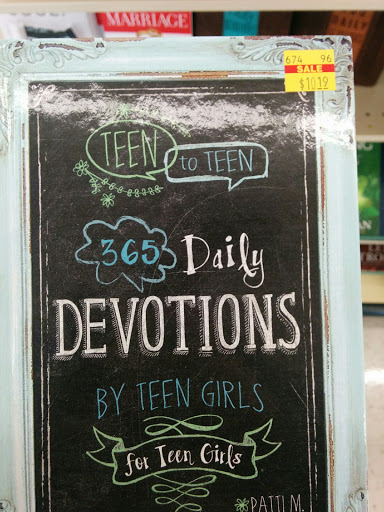 MARRIAGE
674 96
SALE
$10.19
TEEN
to TEEN
365 Daily
DEVOTIONS
BY TEEN GIRLS
for Teen Girls
PATTI M.